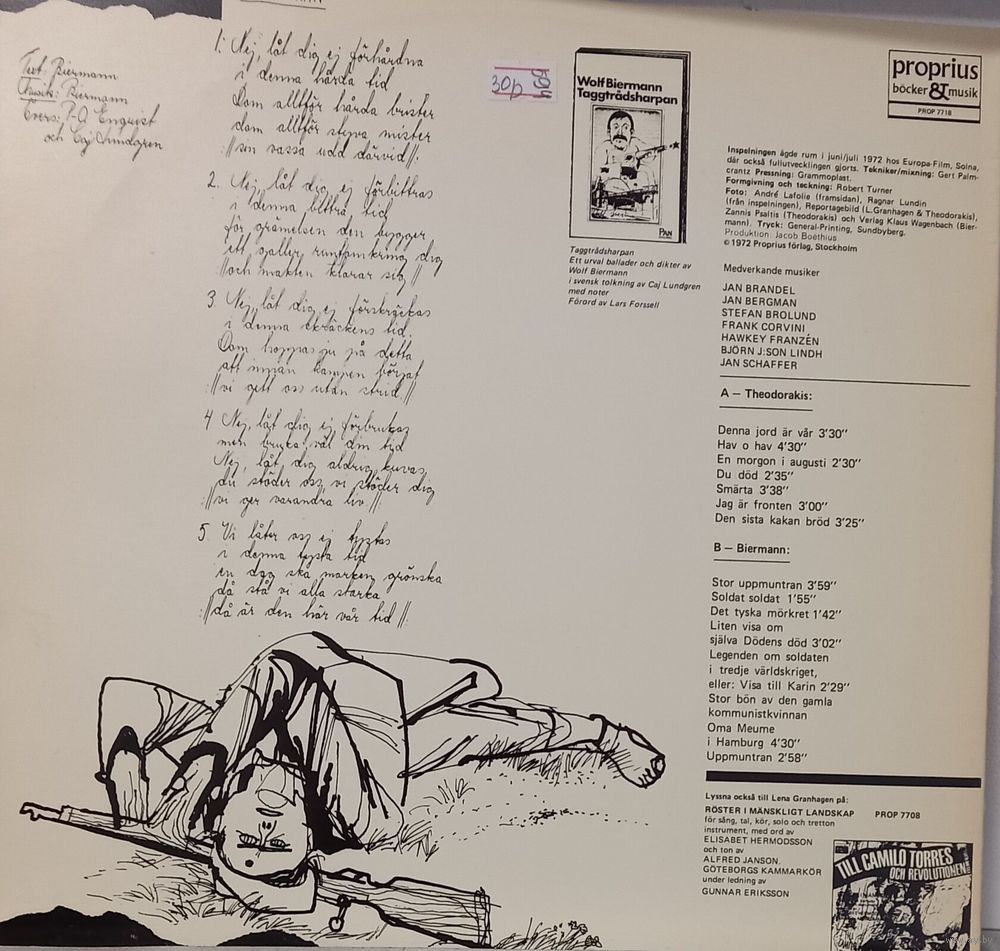 Text: Biermann
Musik: Biermann
Övers: P-O Enquist
och Caj Lundgren
1. Nej, låt dig ej förhårdna
i denna hårda tid
Dom alltför hårda brister
dom alltför styva mister
:// sin vassa udd därvid //:
2. Nej, låt dig ej förbittras
i denna bittra tid
för grämelsen den bygger
ett galler runtomkring dig
:// och makten klarar sig //
3. Nej, låt dig ej förskräckas
i denna skräckens tid.
Dom hoppas ju på detta
att innan kampen börjat
:// vi gett oss utan strid. //
4. Nej, låt dig ej förbrukas
men bruka väl din tid
Nej, låt dig aldrig kuvas,
du stöder oss, vi stöder dig
:// vi ger varandra liv //:
5. Vi låter oss ej tystas
i denna tysta tid
en dag ska marken grönska
då stå vi alla starka
:// då är den här vår tid //:
30p
Wolf Biermann
Taggtrådsharpan
PAN
Taggtrådsharpan
Ett urval ballader och dikter av
Wolf Biermann
i svensk tolkning av Caj Lundgren
med noter
Förord av Lars Forssell
proprius
böcker & musik
PROP 7718
Inspelningen ägde rum i juni/juli 1972 hos Europa-Film, Solna,
där också fullutvecklingen gjorts. Tekniker/mixning: Gert Palm-
crantz Pressning: Grammoplast.
Formgivning och teckning: Robert Turner
Foto: André Lafolie (framsidan), Ragnar Lundin
(från inspelningen), Reportagebild (L.Granhagen & Theodorakis),
Zannis Psaltis (Theodorakis) och Verlag Klaus Wagenbach (Bier-
mann). Tryck: General-Printing, Sundbyberg.
Produktion: Jacob Boëthius
© 1972 Proprius förlag, Stockholm
Medverkande musiker
JAN BRANDEL
JAN BERGMAN
STEFAN BROLUND
FRANK CORVINI
HAWKEY FRANZÉN
BJÖRN J:SON LINDH
JAN SCHAFFER
A — Theodorakis:
Denna jord är vår 3'30''
Hav o hav 4'30''
En morgon i augusti 2'30''
Du död 2'35''
Smärta 3'38''
Jag är fronten 3'00''
Den sista kakan bröd 3'25''
B — Biermann:
Stor uppmuntran 3'59''
Soldat soldat 1'55''
Det tyska mörkret 1'42''
Liten visa om
själva Dödens död 3'02''
Legenden om soldaten
i tredje världskriget,
eller: Visa till Karin 2'29''
Stor bön av den gamla
kommunistkvinnan
Oma Meume
i Hamburg 4'30''
Uppmuntran 2'58''
Lyssna också till Lena Granhagen på:
RÖSTER I MÄNSKLIGT LANDSKAP PROP 7708
för sång, tal, kör, solo och tretton
instrument, med ord av
ELISABET HERMODSSON
och ton av
ALFRED JANSON.
GÖTEBORGS KAMMARKÖR
under ledning av
GUNNAR ERIKSSON
TILL CAMILO TORRES
OCH REVOLUTIONEN